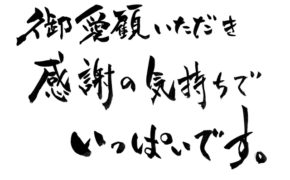 御愛顧いただき
感謝の気持ちで
いっぱいです。